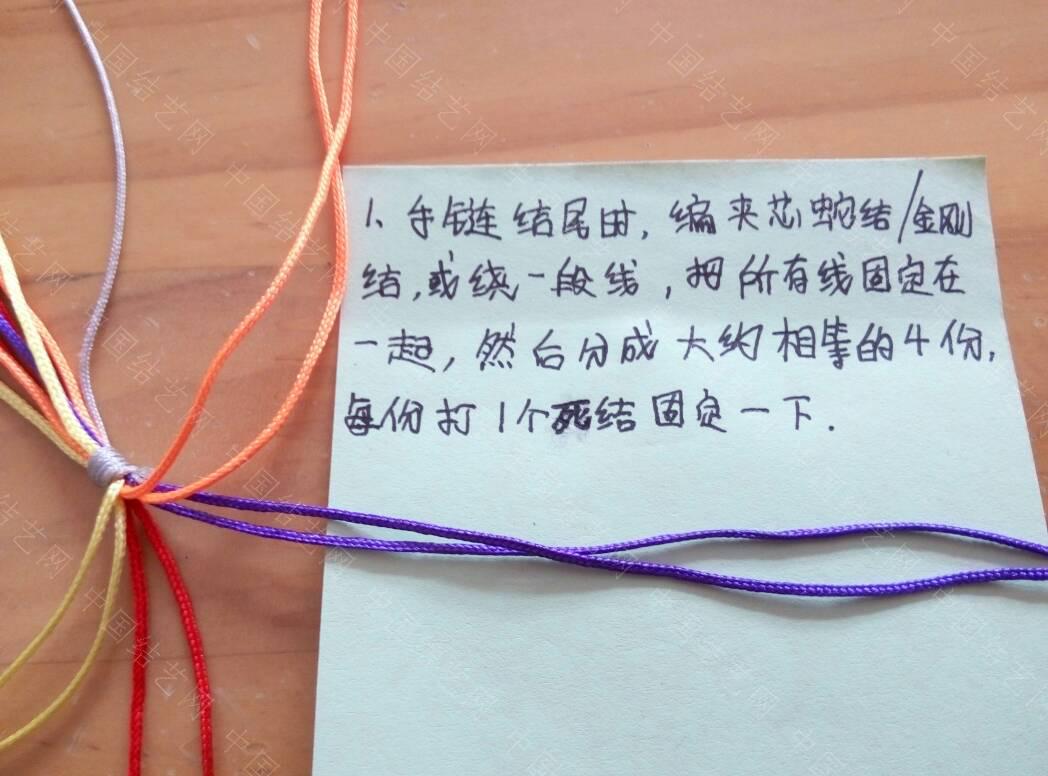 1、手链结尾时，编夹芯蛇结/金刚
结，或绕一段线，把所有线固定在
一起，然后分成大约相等的4份，
每份打1个死结固定一下.
中国结艺网